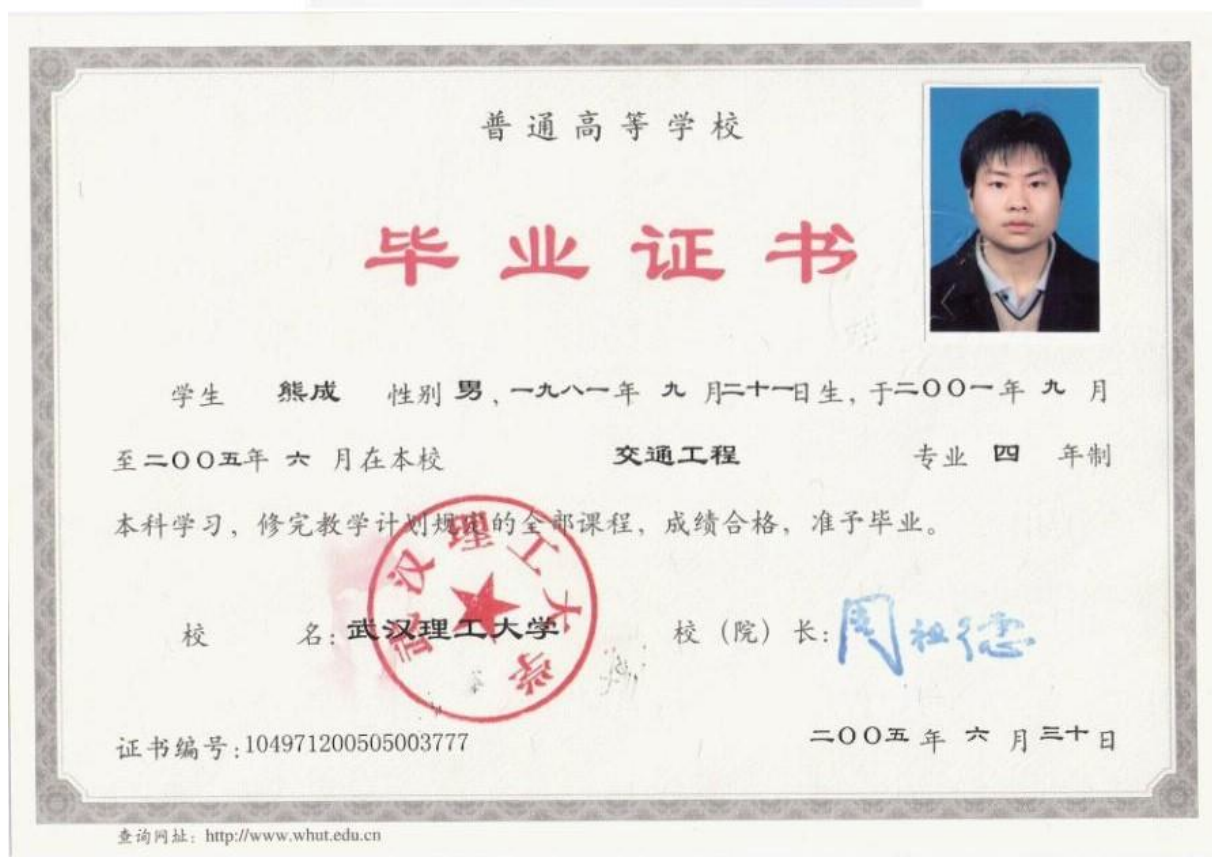 普通高等学校
毕业证书
学生 熊成 性别 男，一九八一年 九 月二十一日生，于二〇〇一年 九 月
至二〇〇五年 六 月在本校 交通工程 专业 四 年制
本科学习，修完教学计划规定的全部课程，成绩合格，准予毕业。
武汉理工大学
校 名：武汉理工大学 校（院）长：周祖德
证书编号：104971200505003777 二〇〇五 年 六 月 三十 日
查询网址：http://www.whut.edu.cn